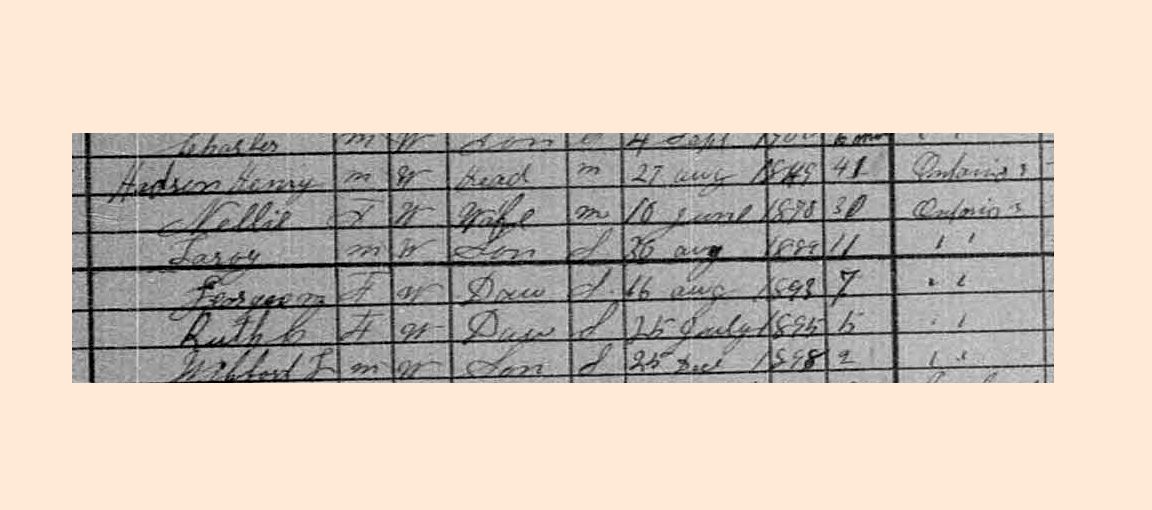 Charles m W Son 4 Sept
Hudson Henry m W Head m 27 aug 1849 41 Ontario
Nellie F W Wife m 10 June 1870 30 Ontario
Laroy m W Son S 26 aug 1889 11 " "
F W Daw S 16 aug 1893 7 " "
Ruth C F W Daw S 25 July 1895 5 " "
m W Son S 25 Dec 1898 2 " "